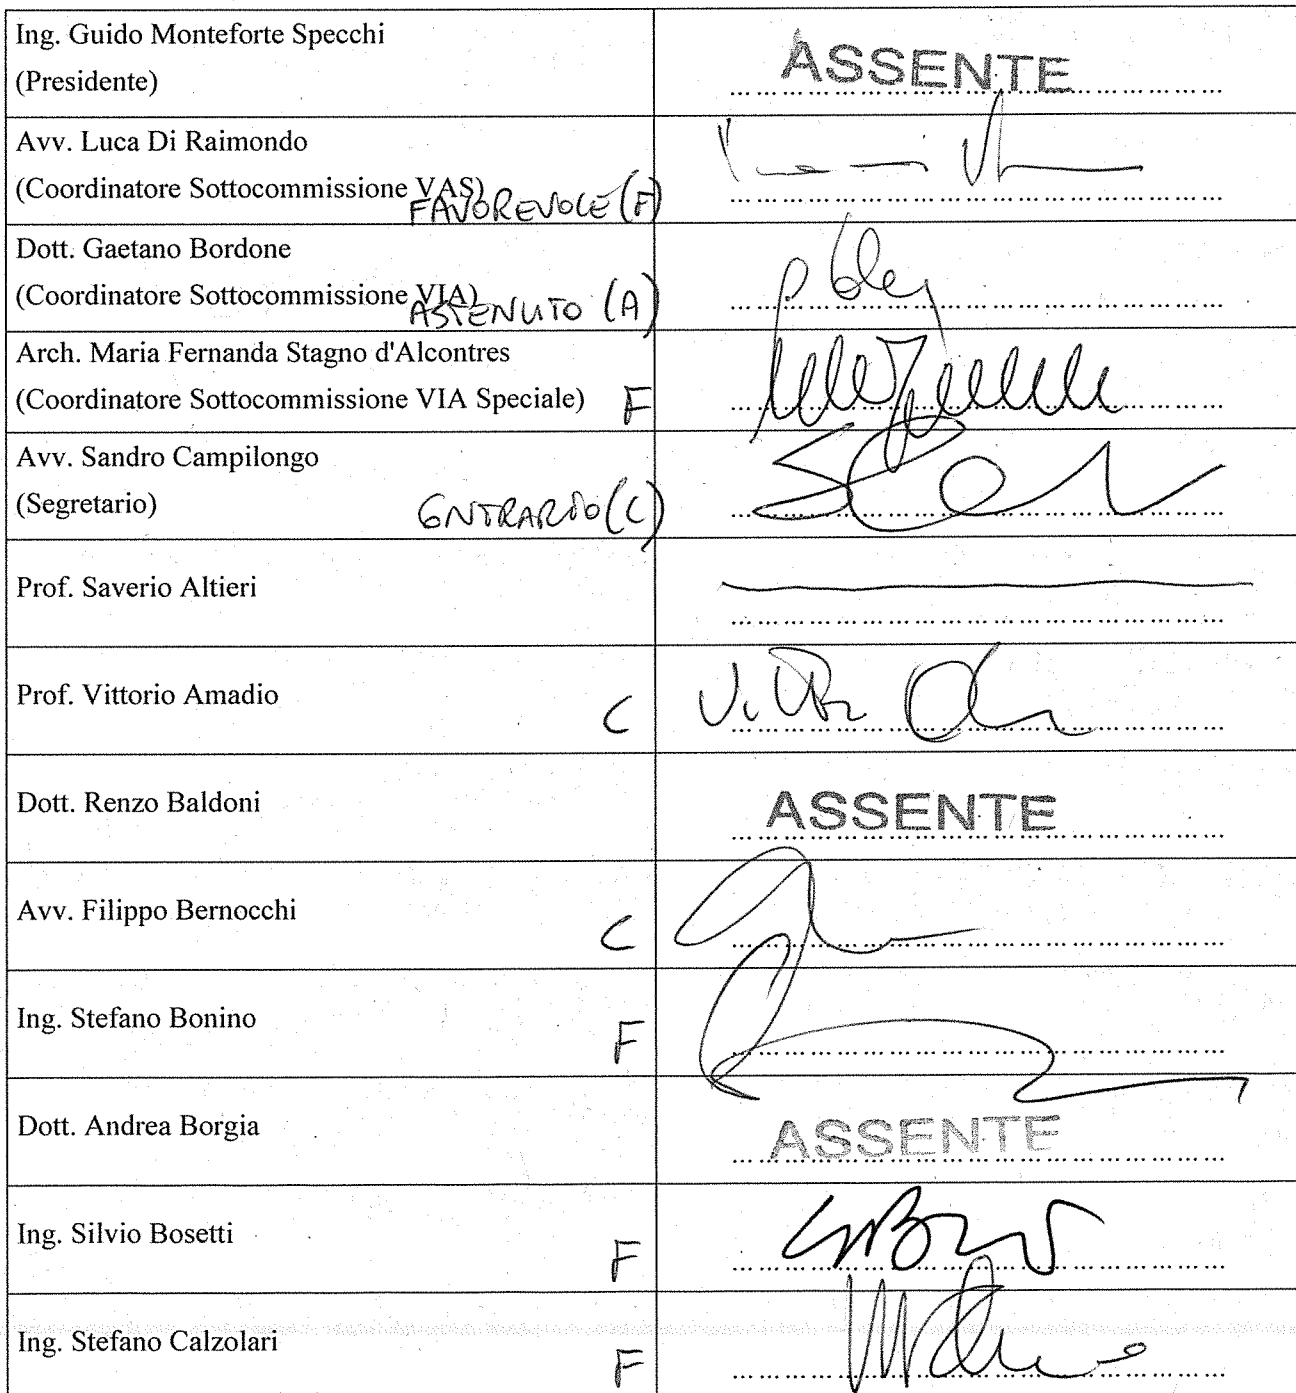 Ing. Guido Monteforte Specchi
(Presidente)
ASSENTE
Avv. Luca Di Raimondo
(Coordinatore Sottocommissione VAS)
FAVOREVOLE (F)
Dott. Gaetano Bordone
(Coordinatore Sottocommissione VIA)
ASTENUTO (A)
Arch. Maria Fernanda Stagno d'Alcontres
(Coordinatore Sottocommissione VIA Speciale) F
Avv. Sandro Campilongo
(Segretario) CONTRARIO (C)
Prof. Saverio Altieri
Prof. Vittorio Amadio C
Dott. Renzo Baldoni ASSENTE
Avv. Filippo Bernocchi C
Ing. Stefano Bonino F
Dott. Andrea Borgia ASSENTE
Ing. Silvio Bosetti F
Ing. Stefano Calzolari F